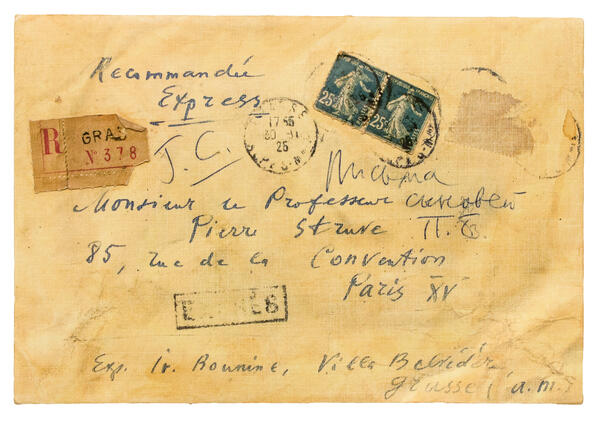 Recommandée
Express
R
GRAS
N° 378
17 35
25
25
25
J. C.
Monsieur le Professeur
Pierre Struve П.Б.
85, rue de la Convention
Paris XV
Exp. Iv. Bounine, Villa Belvédèr
Grasse, a.m.